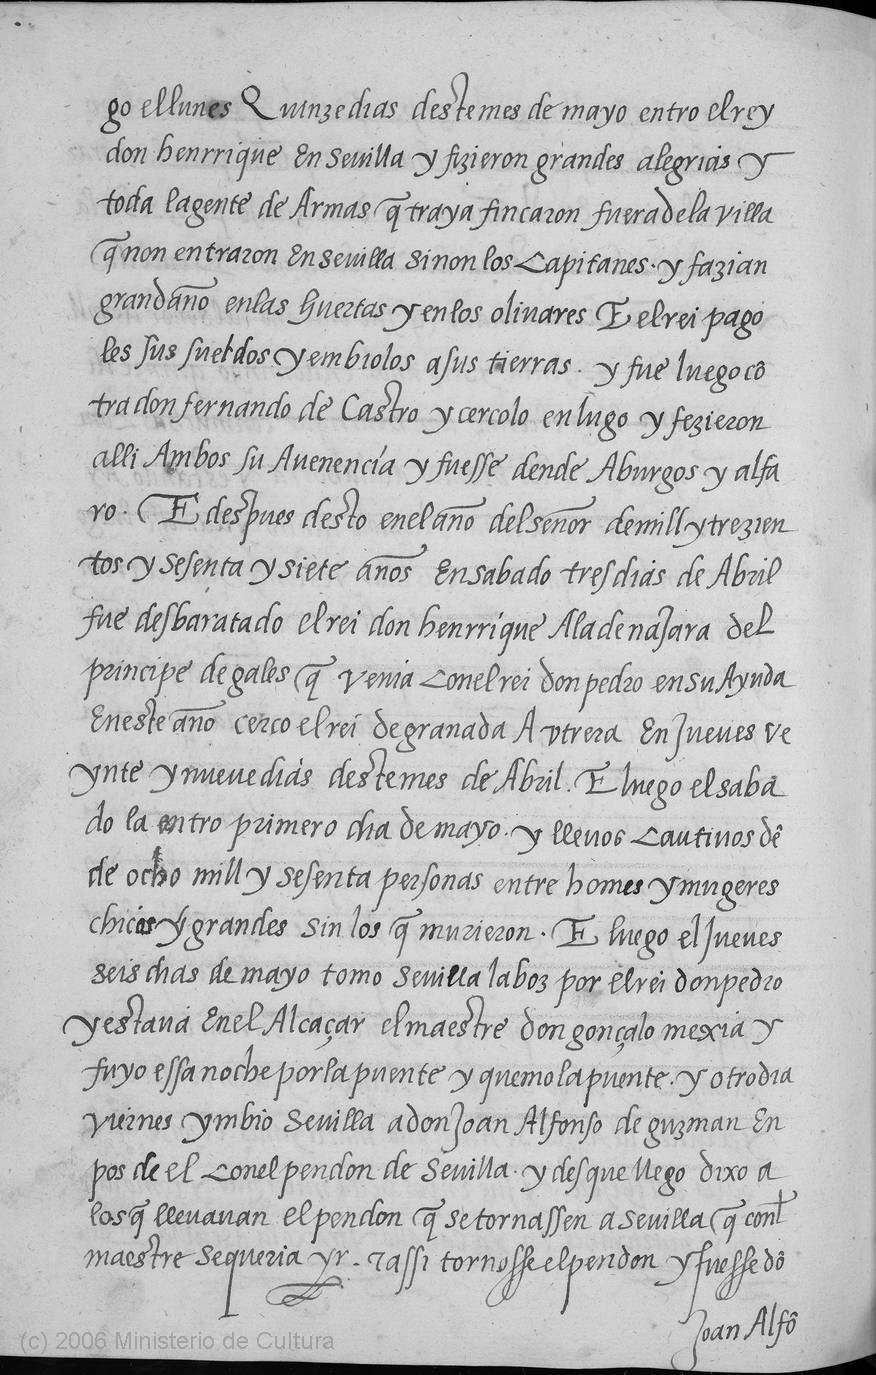 go el lunes Quinze dias deste mes de mayo entro el rey
don henrrique En sevilla y fizieron grandes alegrias y
toda la gente de Armas q̃ traya fincaron fuera de la villa
q̃ non entraron En sevilla sinon los Capitanes. y fazian
grand año en las huertas y en los olivares E el rei pago
les sus sueldos y embiolos a sus tierras. y fue luego cõ
tra don fernando de Castro y cercolo en lugo y fezieron
alli Ambos su Auenencia y fuesse dende A burgos y alfa
ro. E despues desto en el año del señor de mill y trezien
tos y sesenta y siete años En sabado tres dias de Abril
fue desbaratado el rei don henrrique A la de najara del
principe de gales q̃ venia Con el rei don pedro en su Ayuda
En este año cerco el rei de granada A vtrera En Jueves ve
ynte y nueve dias deste mes de Abril. E luego el saba
do la entro primero dia de mayo. y llevos Cautivos dẽ
de ocho mill y sesenta personas entre homes y mugeres
chicos y grandes sin los q̃ murieron. E luego el Jueves
seis dias de mayo tomo sevilla la boz por el rei don pedro
y estava En el Alcaçar el maestre don gonçalo mexia y
fuyo essa noche por la puente y quemo la puente. y otro dia
viernes ymbio sevilla a don Joan Alfonso de guzman En
pos de el Con el pendon de sevilla. y desque llego dixo a
los q̃ llevavan el pendon q̃ se tornassen a sevilla q̃ con l
maestre se queria yr. z assi tornosse el pendon y fuesse dõ
Joan Alfõ
(c) 2006 Ministerio de Cultura